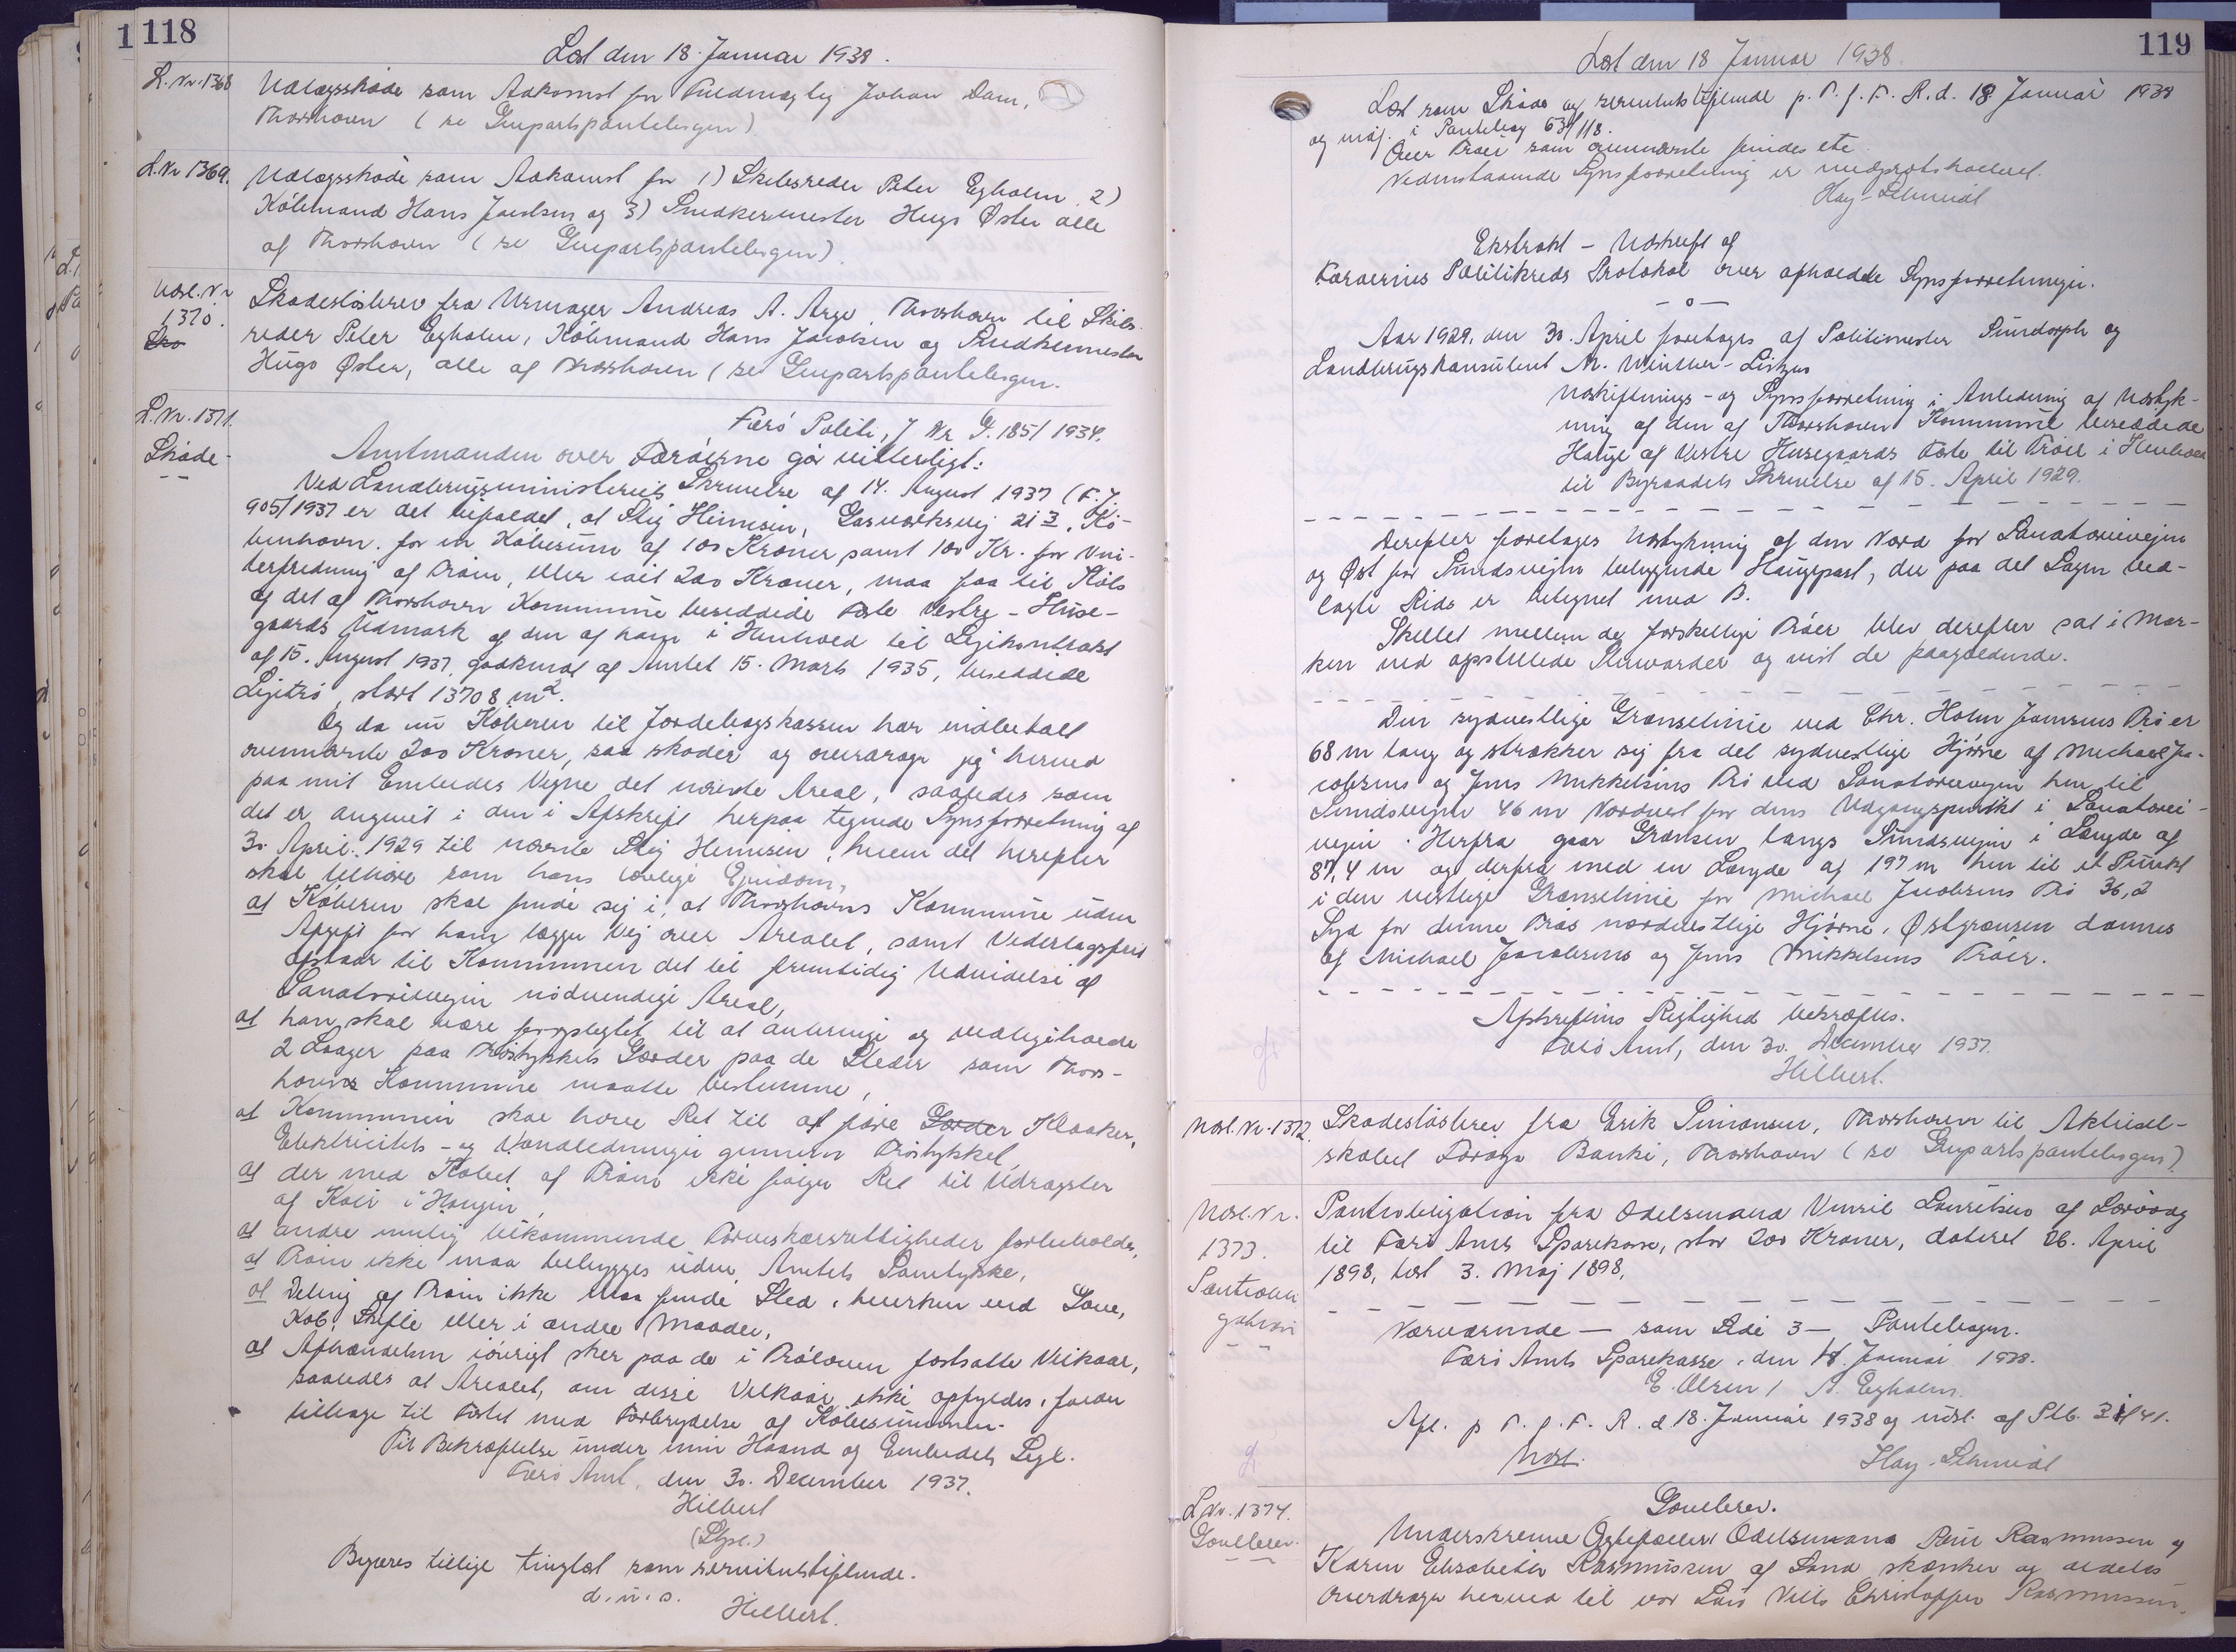 118
Læst den 18. Januar 1938.
L. Nr. 1368
Udlægsskøde som Adkomst for Fuldmægtig Johan Dam,
Thorshavn (se Genpartspantebogen)
L. Nr 1369.
Udlægsskøde som Adkomst for 1) Skibsreder Peter Egholm 2)
Købmand Hans Jacobsen og 3) Snedkermester Hugo Øster alle
af Thorshavn (se Genpartspantebogen).
Udsl. Nr
1370.
Sko
Skadesløsbrev fra Urmager Andreas A. Arge, Thorshavn til Skibs-
reder Peter Egholm, Købmand Hans Jacobsen og Snedkermester
Hugo Øster, alle af Thorshavn (se Genpartspantebogen.
L. Nr. 1371.
Skøde
Færø Politi, J Nr G. 185/1934.
Amtmanden over Færøerne gør vitterligt:
Ved Landbrugsministeriets Skrivelse af 14. August 1937 (F. J.
905/1937 er det bifaldet, at Stig Hennisen, Gasværksvej 21 3, Kø-
benhavn. for en Købesum af 100 Kroner samt 100 Kr. for Vin-
terfredning af Trøen, eller ialt 200 Kroner, maa faa til Købs
og det af Thorshavn Kommune besiddede Fæste Vestre-Huse-
gaards Udmark og den af ham i Henhold til Lejekontrakt
af 15. August 1937, godkendt af Amtet 15. Marts 1935, besiddede
Lejetrø, stort 13708 m².
Og da nu Køberen til Jordebogskassen har indbetalt
ovennævnte 200 Kroner, saa skøder og overdrager jeg herved
paa mit Embedes Vegne det nævnte Areal, saaledes som
det er angivet i den i Afskrift herpaa tegnede Synsforretning af
30. April 1929 til nævnte Stig Hennisen, hvem det herefter
skal tilhøre som hans lovlige Ejendom,
at Køberen skal finde sig i, at Thorshavns Kommune uden
Afgift for ham lægger Vej over Arealet, samt Vederlagsfrit
afstaar til Kommunen det til fremtidig Udvidelse af
Sanatorievejen nødvendige Areal,
at han skal være forpligtet til at anbringe og vedligeholde
2 Laager paa Trøstykkets Gærder paa de Steder som Thors-
havns Kommune maatte bestemme,
at Kommunen skal have Ret til at føre Gærder Kloaker,
Elektricitets- og Vandledninger gennem Trøstykket,
at der med Købet af Trøen ikke følger Ret til Udrægster
af Køer i Haugen,
at andre mulig tilkommende Tørveskærsrettigheder forbeholdes,
at Trøen ikke maa bebygges uden Amtets Samtykke,
at Deling af Trøen ikke maa finde Sted, hverken ved Gave,
Køb, Skifte eller i andre Maader,
at Afhændelsen iøvrigt sker paa de i Trøloven fastsatte Vilkaar,
saaledes at Arealet, om disse Vilkaar ikke opfyldes, falder
tilbage til Fæstet med Fortrydelse af Købesummen.
Til Bekræftelse under min Haand og Embedets Segl.
Færø Amt, den 30. December 1937.
Hilbert
(Segl.)
Begæres tillige tinglæst som servitutstiftende.
d. u. s.
Hilbert.
119
Læst den 18 Januar 1938.
Læst som Skøde og servitutstiftende p. T. f. F. R. d. 18 Januar 1938
og indf. i Pantebog 63/118.
Over Trøer som ovennævnte findes ete.
Vedenstaaende Synsforretning er medprotokolleret.
Hay-Schmidt
Ekstrakt - Udskrift af
Færøernes Politikreds Protokol over afholdte Synsforretninger.
Aar 1929, den 30. April foretages af Politimester Sundorph og
Landbrugskonsulent M. Winther-Lützen
Udskiftnings- og Synsforretning i Anledning af Udstyk-
ning af den af Thorshavn Kommune besiddede
Hauge af Vestre Husegaards Fæste til Trøer i Henhold
til Byraadets Skrivelse af 15. April 1929.
Derefter foretages Udstykning af den Nord for Sanatorievejen
og Øst for Sundsvejen beliggende Haugepart, der paa det Sagen ved-
lagte Rids er betegnet med B.
Skellet mellem de forskellige Trøer blev derefter sat i Mar-
ken ved opstillede Stenvarder og vist de paagældende.
Den sydvestlige Grænselinie ved Chr. Holm Jensens Trø er
68 m lang og strækker sig fra det sydvestlige Hjørne af Michael Ja-
cobsens og Jens Mikkelsens Trø ved Sanatorievejen hen til
Sundsvejen 46 m Nordvest for dens Udgangspunkt i Sanatorie-
vejen. Herfra gaar Grænsen langs Sundsvejen i Længde af
87,4 m og derfra med en Længde af 197 m hen til et Punkt
i den vestlige Grænselinie for Michael Jacobsens Trø 36,2
Syd for denne Trøs nordvestlige Hjørne. Østgrænsen dannes
af Michael Jacobsens og Jens Mikkelsens Trøer.
Afskriftens Rigtighed bekræftes.
Færø Amt, den 30. December 1937.
Hilbert.
Udsl. Nr. 1372.
Skadesløsbrev fra Erik Simonsen, Thorshavn til Aktiesel-
skabet Føroya Banki, Thorshavn (se Genpartspantebogen).
Udsl. Nr.
1373.
Pantobli
gation
Pantobligation fra Odelsmand Lauritsen af Sørvaag
til Færø Amts Sparekasse, stor 200 Kroner, dateret 26. April
1898, læst 3. Maj 1898.
Nærværende - som Side 3 - Pantebogen.
Færø Amts Sparekasse, den 18. Januar 1938.
E. Olsen / A. Egholm.
Afl. p. T. f. F. R. d 18. Januar 1938 og udsl. af Ptb. 31/41.
Udsl.
Hay-Schmidt
L Nr. 1374.
Gavebrev.
Gavebrev.
Underskrevne Ægtefæller Odelsmand Poul Rasmussen og
Karen Elisabeth Rasmussen af Sand skænker og aldeles
overdrager herved til vor Søn Niels Christoffer Rasmussen,